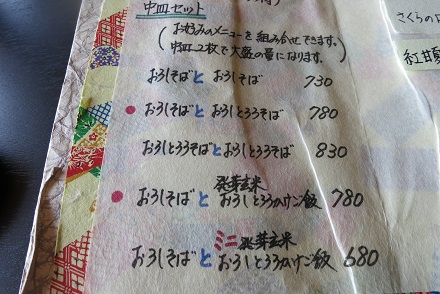 中皿セット
(お好みのメニューを組み合せできます。
中皿2枚で大盛の量になります。)
おろしそばと おろしそば 730
● おろしそばと おろしとろろそば 780
おろしとろろそばとおろしとろろそば 830
● おろしそばと 発芽玄米おろしとろろかけご飯 780
おろしそばと ミニ発芽玄米おろしとろろかけご飯 680
さくらの
紅甘夏